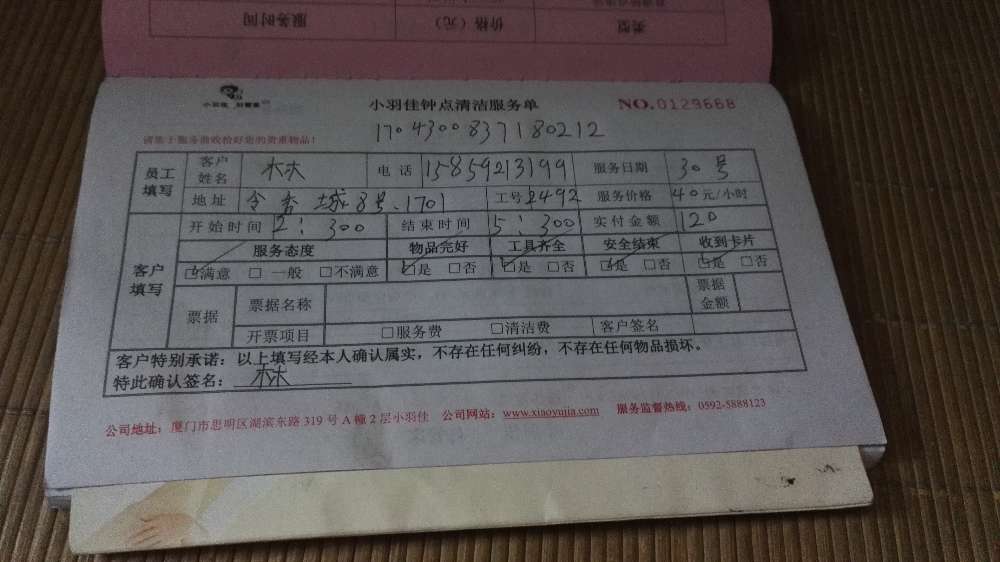 类型 价格（元） 服务时间
小羽佳钟点清洁服务单 NO.0129668
请客户服务前收拾好您的贵重物品！
1704300837180212
员工填写 客户姓名 林 电话 15859213199 服务日期 30号
地址 8号.1701 工号 2492 服务价格 40元/小时
客户填写 开始时间 2：300 结束时间 5：300 实付金额 120
服务态度 物品完好 工具齐全 安全结束 收到卡片
☑满意 □一般 □不满意 ☑是 □否 ☑是 □否 ☑是 □否 ☑是 □否
票据 票据名称 票据金额
开票项目 □服务费 □清洁费 客户签名
客户特别承诺：以上填写经本人确认属实，不存在任何纠纷，不存在任何物品损坏。
特此确认签名：林
公司地址：厦门市思明区湖滨东路319号A幢2层小羽佳 公司网站：www.xiaoyujia.com 服务监督热线：0592-5888123